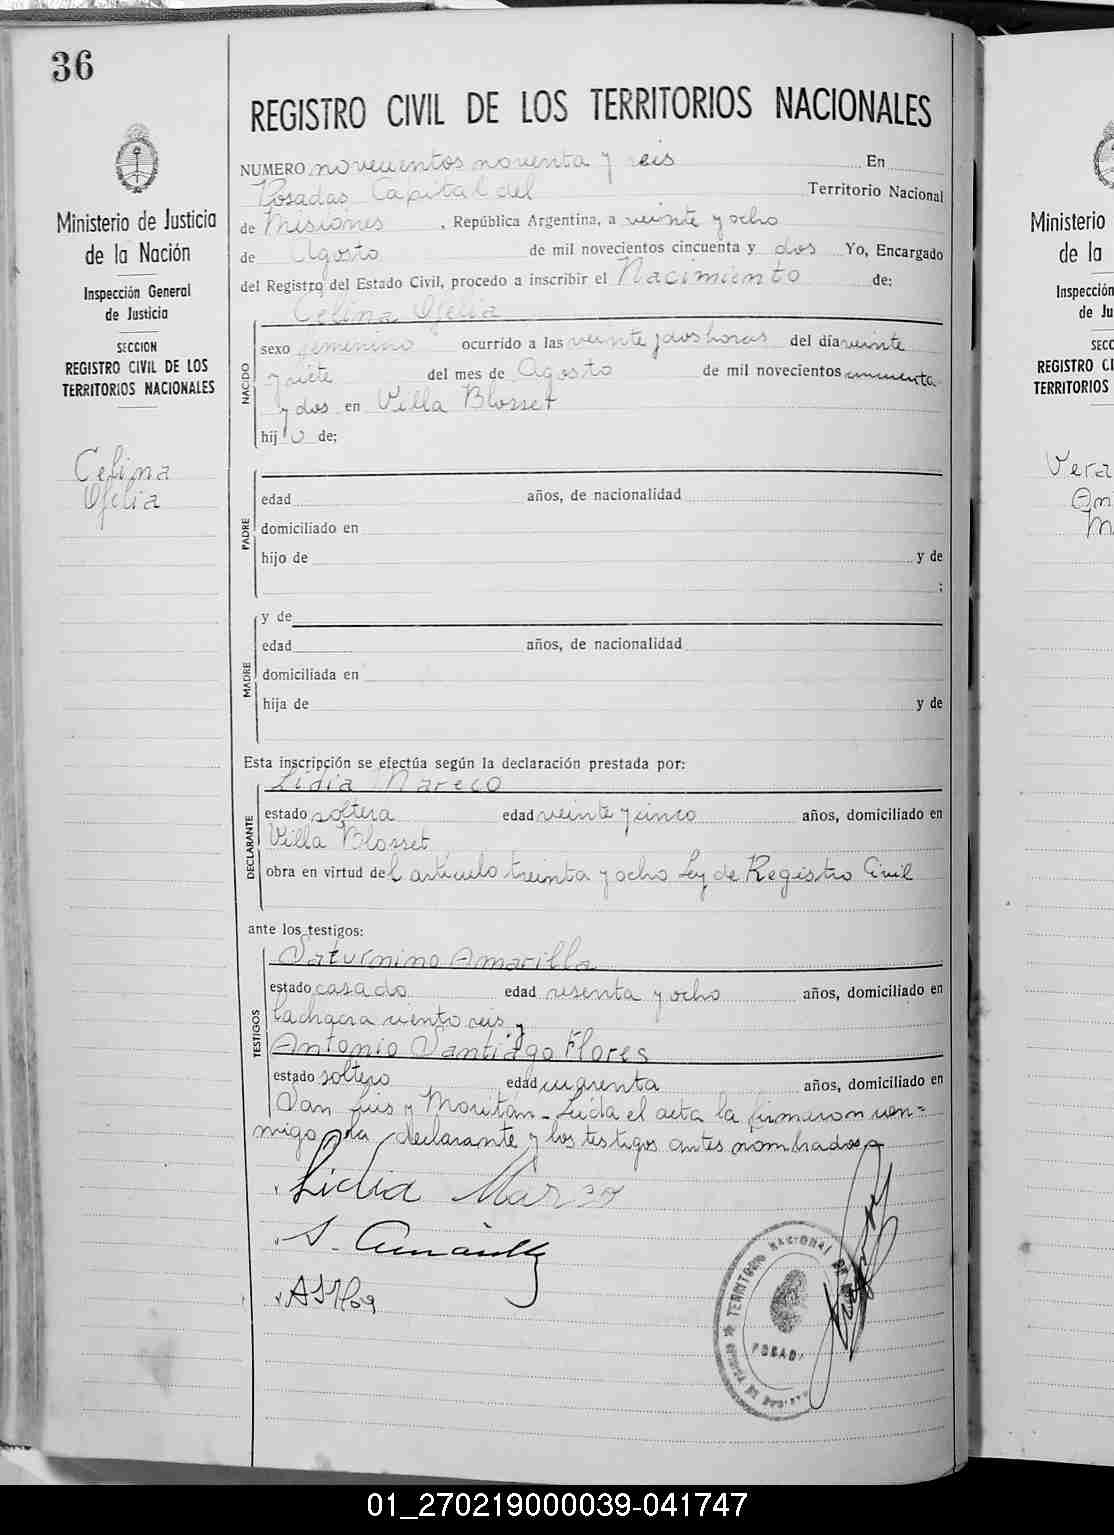 36
REGISTRO CIVIL DE LOS TERRITORIOS NACIONALES
Ministerio de Justicia
de la Nación
Inspección General
de Justicia
SECCION
REGISTRO CIVIL DE LOS
TERRITORIOS NACIONALES
Celina
Ofelia
NUMERO novecientos noventa y seis En
Posadas Capital del Territorio Nacional
de Misiones, República Argentina, a veinte y ocho
de Agosto de mil novecientos cincuenta y dos Yo, Encargado
del Registro del Estado Civil, procedo a inscribir el Nacimiento de:
Celina Ofelia
NACIDO
sexo femenino ocurrido a las veinte y dos horas del día veinte
y siete del mes de Agosto de mil novecientos cincuenta
y dos en Villa Blosset
hij o de;
PADRE
edad años, de nacionalidad
domiciliado en
hijo de y de
;
MADRE
y de
edad años, de nacionalidad
domiciliada en
hija de y de
Esta inscripción se efectúa según la declaración prestada por:
Lidia Mareco
DECLARANTE
estado soltera edad veinte y cinco años, domiciliado en
Villa Blosset
obra en virtud del articulo treinta y ocho Ley de Registro Civil
ante los testigos:
Saturnino Amarilla
TESTIGOS
estado casado edad sesenta y ocho años, domiciliado en
la chacra ciento seis y
Antonio Santiago Flores
estado soltero edad cuarenta años, domiciliado en
San Luis y Moritán - Leida el acta la firmaron con=
migo la declarante y los testigos antes nombrados
Lidia Mareco
S. Amarilla
TERRITORIO NACIONAL DE
POSADAS
Ministerio
de la
Inspección
de Ju
SECC
REGISTRO CI
TERRITORIOS
Vera
An
M
01_270219000039-041747